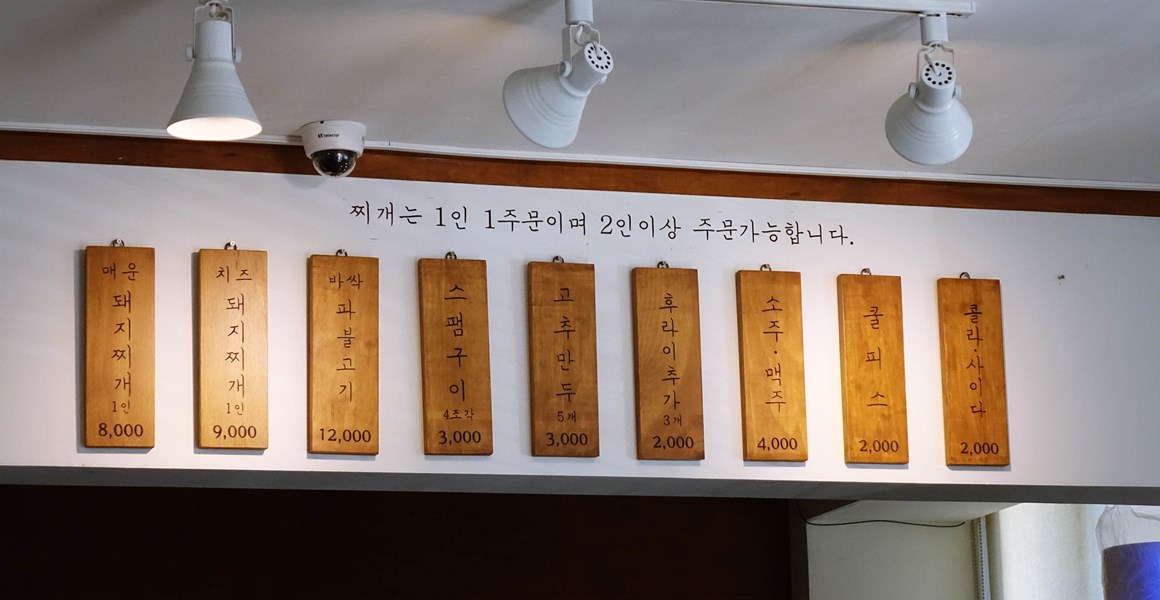 찌개는 1인 1주문이며 2인이상 주문가능합니다.
매운
돼지찌개
1인
8,000
치즈
돼지찌개
1인
9,000
바싹
파불고기
12,000
스팸구이
4조각
3,000
고추만두
5개
3,000
후라이추가
3개
2,000
소주·맥주
4,000
쿨피스
2,000
콜라·사이다
2,000